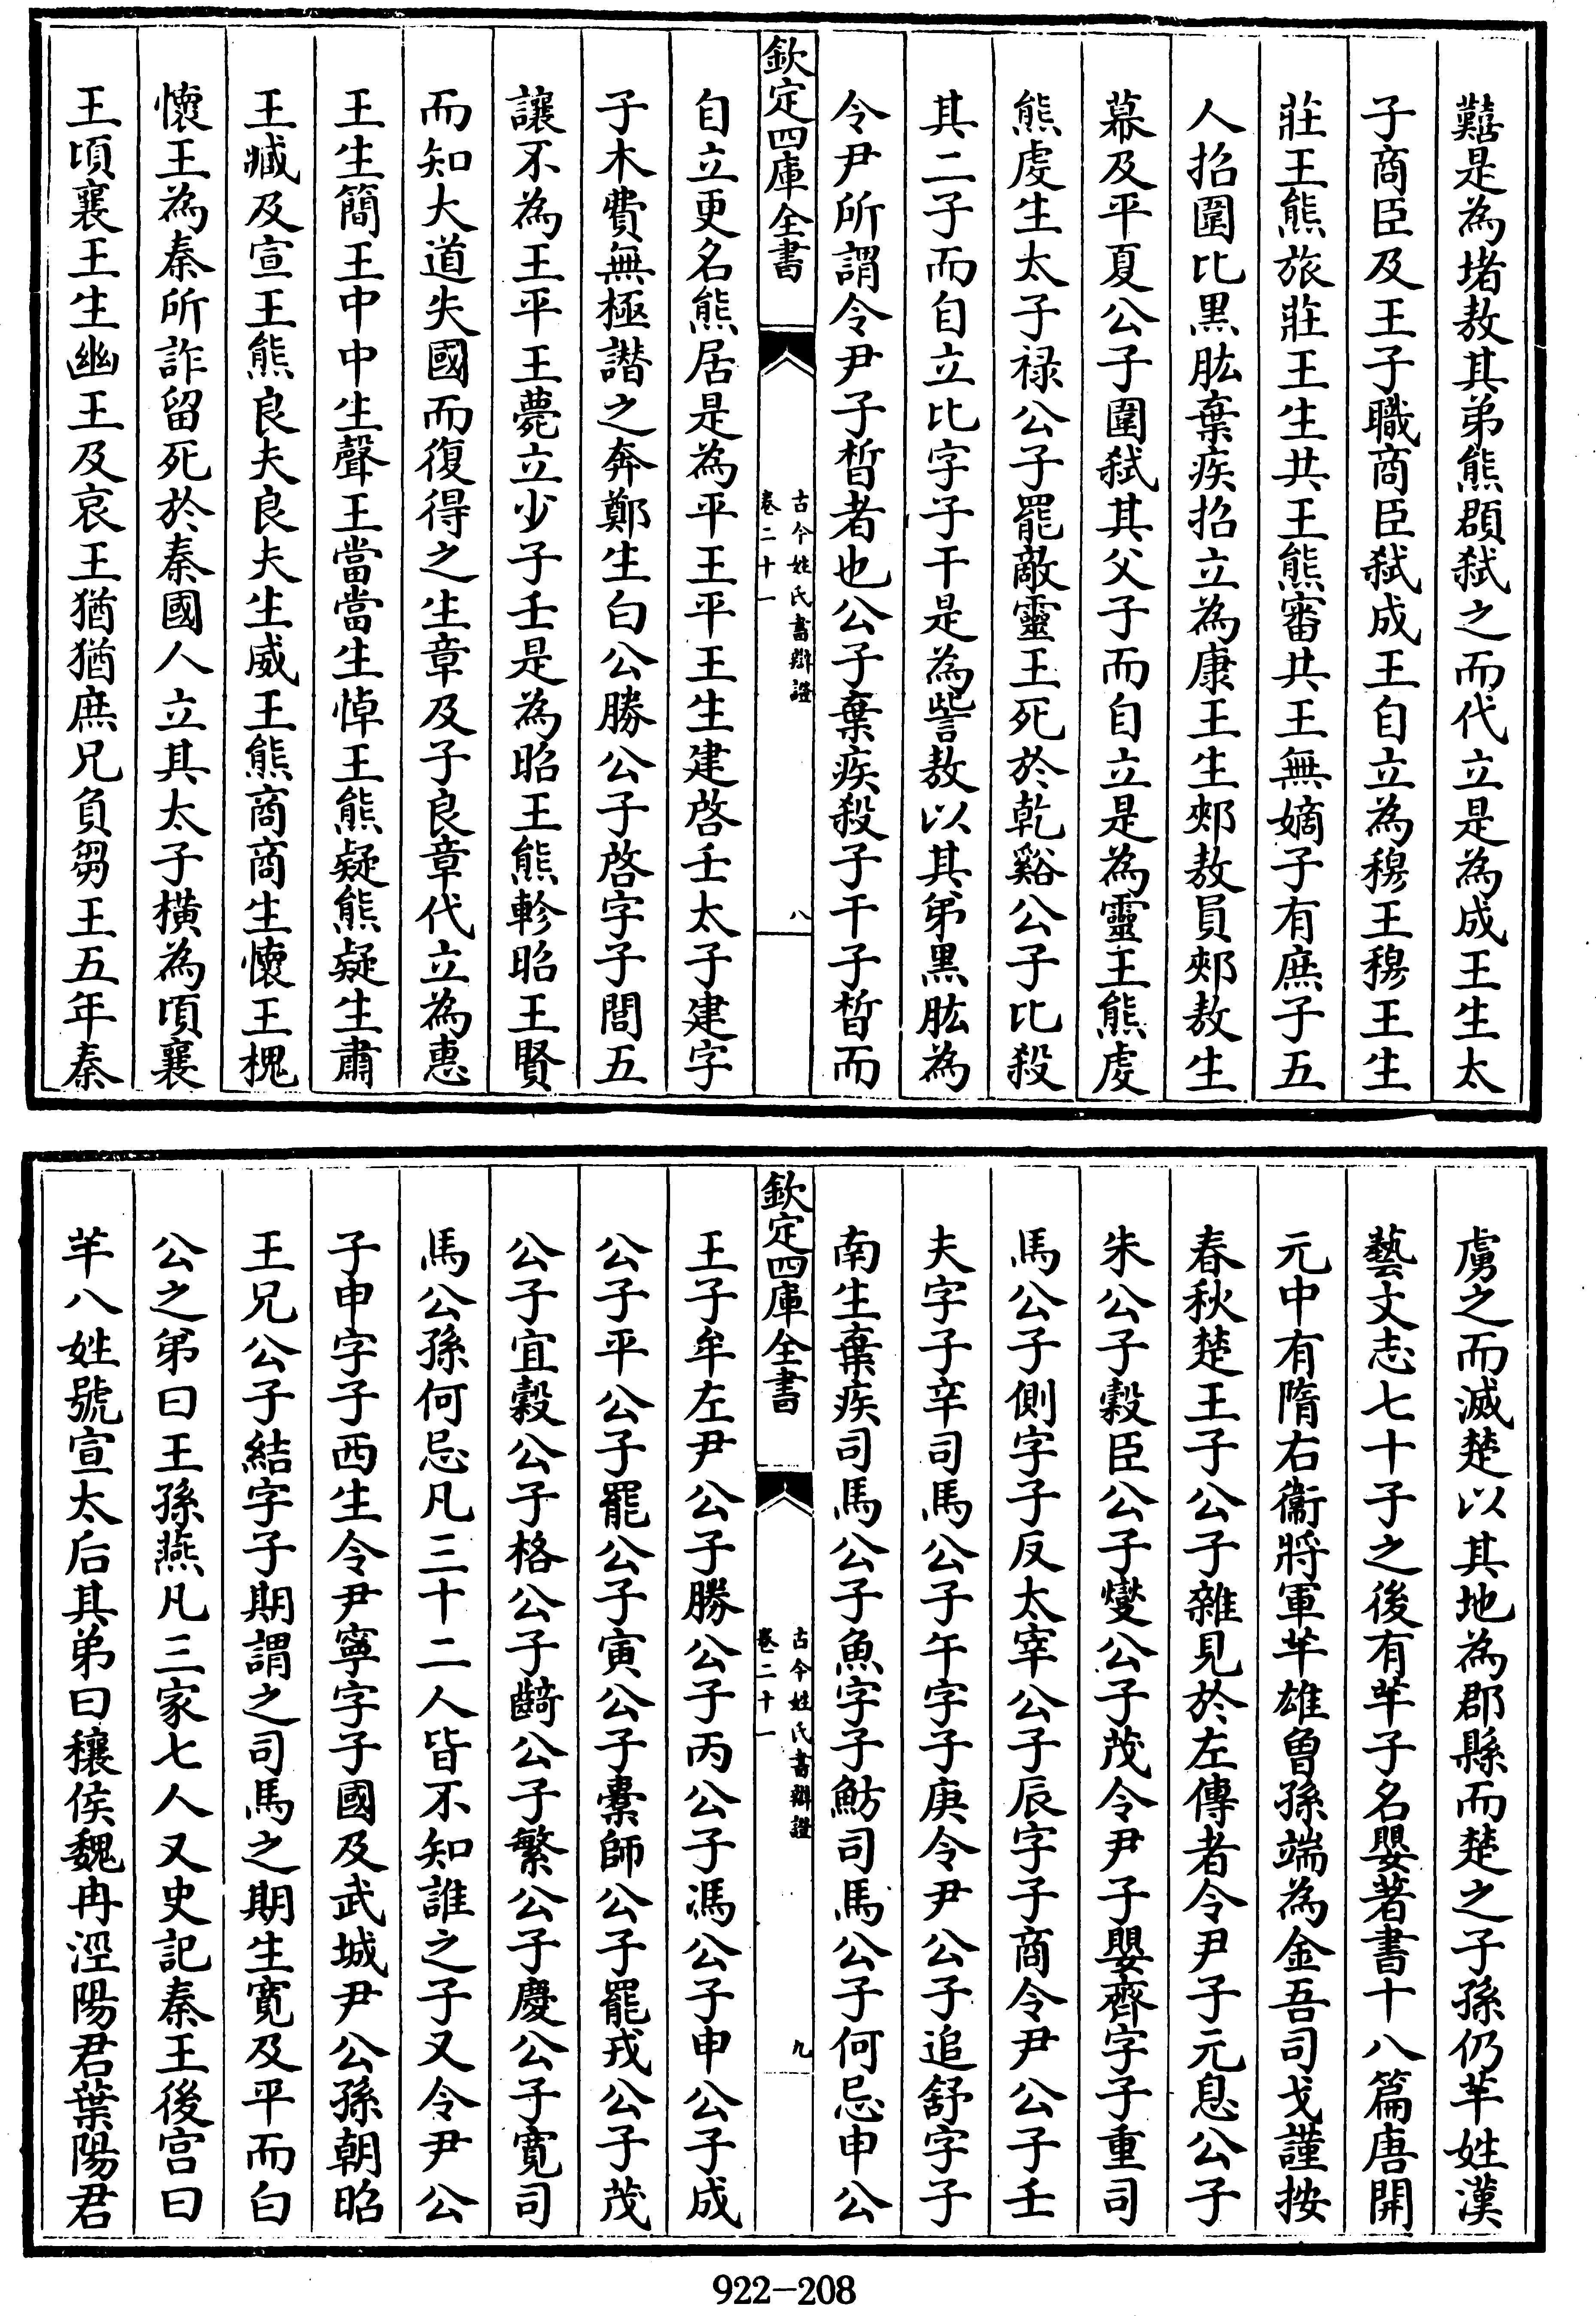 囏是為堵敖其弟熊頵弑之而代立是為成王生太
子商臣及王子職商臣弑成王自立為穆王穆王生
莊王熊旅莊王生共王熊審共王無嫡子有庶子五
人招圍比黑肱棄疾招立為康王生郟敖員郟敖生
幕及平夏公子圍弑其父子而自立是為靈王熊虔
熊虔生太子禄公子罷敵靈王死於乾谿公子比殺
其二子而自立比字子干是為訾敖以其弟黑肱為
令尹所謂令尹子晳者也公子棄疾殺子干子晳而
欽定四庫全書
古今姓氏書辯證
卷二十一
八
自立更名熊居是為平王平王生建啓壬太子建字
子木費無極譖之奔鄭生白公勝公子啓字子閭五
讓不為王平王薨立少子壬是為昭王熊軫昭王賢
而知大道失國而復得之生章及子良章代立為惠
王生簡王中中生聲王當當生悼王熊疑熊疑生肅
王臧及宣王熊良夫良夫生威王熊商商生懷王槐
懷王為秦所詐留死於秦國人立其太子橫為頃襄
王頃襄王生幽王及哀王猶猶庶兄負芻王五年秦
虜之而滅楚以其地為郡縣而楚之子孫仍芈姓漢
藝文志七十子之後有芈子名嬰著書十八篇唐開
元中有隋右衞將軍芈雄曾孫端為金吾司戈謹按
春秋楚王子公子雜見於左傳者令尹子元息公子
朱公子穀臣公子燮公子茂令尹子嬰齊字子重司
馬公子側字子反太宰公子辰字子商令尹公子壬
夫字子辛司馬公子午字子庚令尹公子追舒字子
南生棄疾司馬公子魚字子魴司馬公子何忌申公
欽定四庫全書
古今姓氏書辯證
卷二十一
九
王子牟左尹公子勝公子丙公子馮公子申公子成
公子平公子罷公子寅公子櫜師公子罷戎公子茂
公子宜穀公子格公子齮公子繁公子慶公子寛司
馬公孫何忌凡三十二人皆不知誰之子又令尹公
子申字子西生令尹寧字子國及武城尹公孫朝昭
王兄公子結字子期謂之司馬之期生寛及平而白
公之弟曰王孫燕凡三家七人又史記秦王後宫曰
芈八姓號宣太后其弟曰穰侯魏冉涇陽君葉陽君
922-208